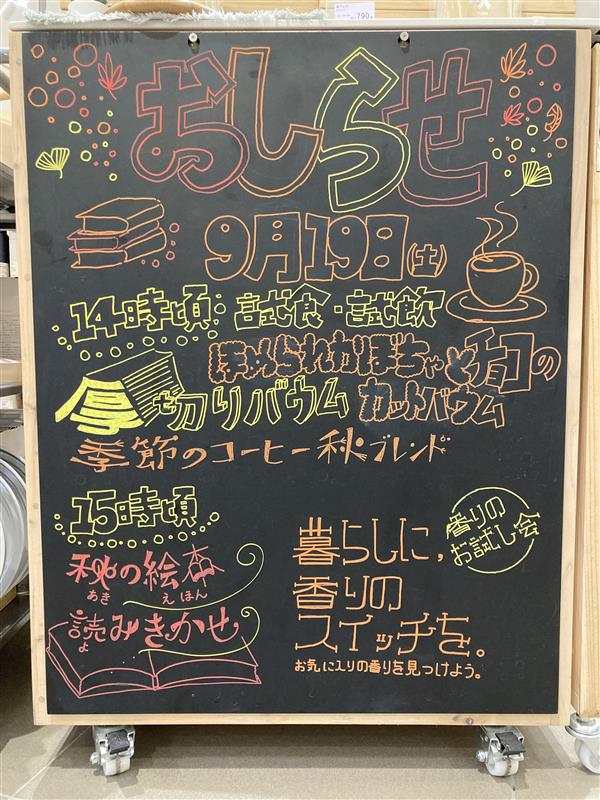 790
おしらせ
9月19日(土)
14時頃 試食・試飲
ほめられかぼちゃとチョコの
厚切りバウム カットバウム
季節のコーヒー秋ブレンド
15時頃
秋の絵本
あき えほん
読みきかせ
よ
香りの
お試し会
暮らしに、
香りの
スイッチを。
お気に入りの香りを見つけよう。